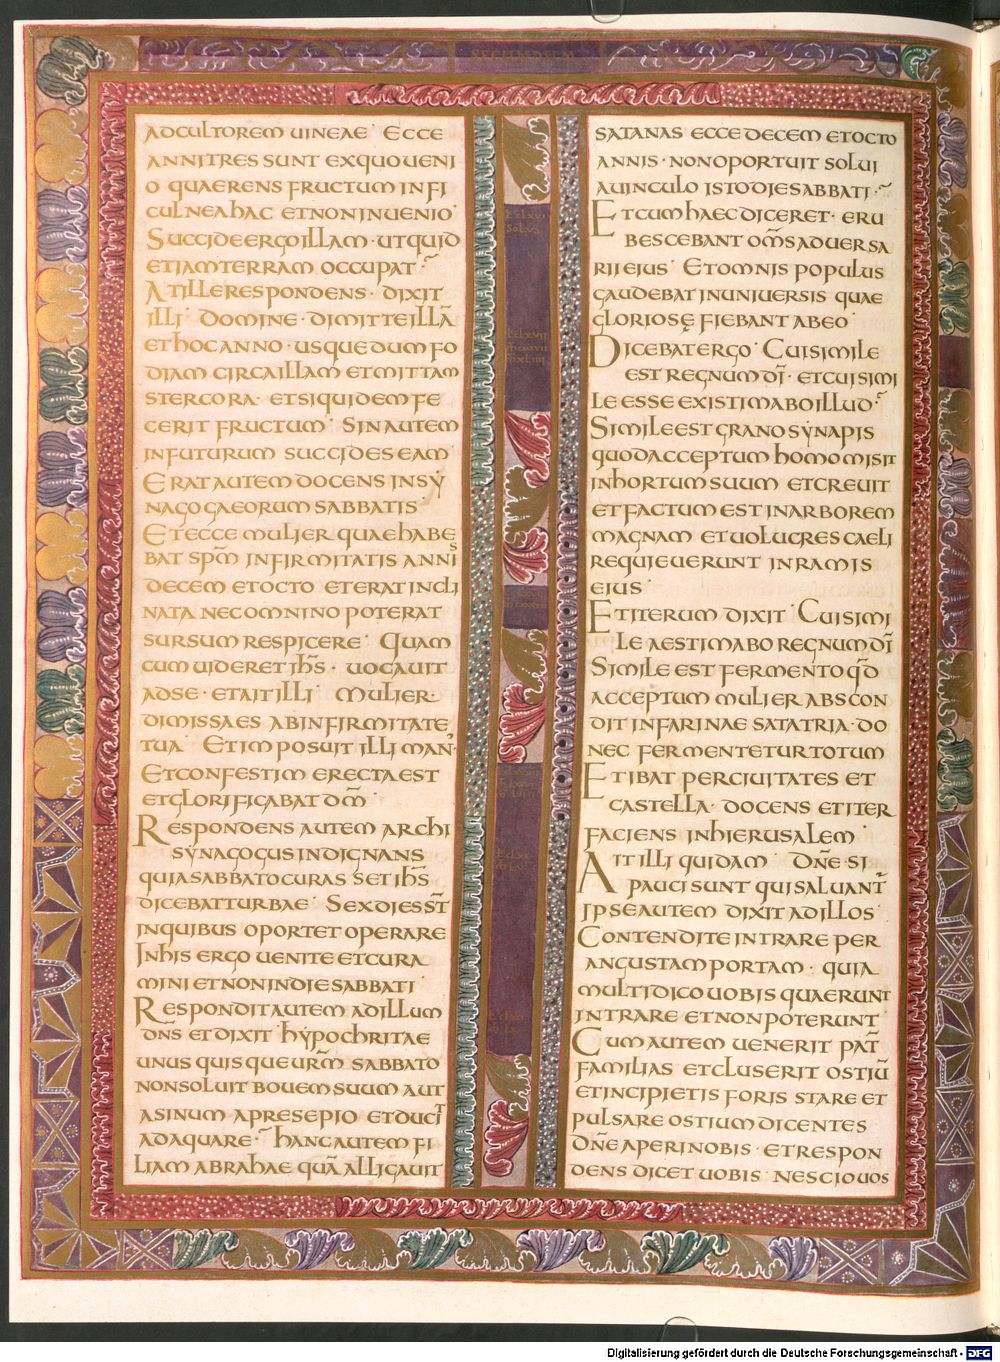 SECUNDUM
ADCULTOREM UINEAE · ECCE
ANNI TRES SUNT EX QUO UENI
O QUAERENS FRUCTUM IN FI
CULNEA HAC ET NON INUENIO ·
SUCCIDE ERGO ILLAM · UT QUID
ETIAM TERRAM OCCUPAT ·
AT ILLE RESPONDENS · DIXIT
ILLI · DOMINE · DIMITTE ILLĀ
ET HOC ANNO · USQUE DUM FO
DIAM CIRCA ILLAM ET MITTAM
STERCORA · ET SIQUIDEM FE
CERIT FRUCTUM · SIN AUTEM
IN FUTURUM SUCCIDES EAM ·
ERAT AUTEM DOCENS IN SẎ
NAGOGA EORUM SABBATIS ·
ET ECCE MULIER QUAE HABE
BAT SPM̄ INFIRMITATIS ANNIS
DECEM ET OCTO ET ERAT INCLI
NATA NEC OMNINO POTERAT
SURSUM RESPICERE · QUAM
CUM UIDERET IHS̄ · UOCAUIT
AD SE · ET AIT ILLI · MULIER ·
DIMISSA ES AB INFIRMITATE
TUA · ET IMPOSUIT ILLI MAN ·
ET CONFESTIM ERECTA EST
ET GLORIFICABAT DM̄ ·
RESPONDENS AUTEM ARCHI
SẎNAGOGUS INDIGNANS
QUIA SABBATO CURASSET IHS̄
DICEBAT TURBAE · SEX DIES ST̄
IN QUIBUS OPORTET OPERARE
IN HIS ERGO UENITE ET CURA
MINI ET NON IN DIE SABBATI ·
RESPONDIT AUTEM AD ILLUM
DNS ET DIXIT · HẎPOCHRITAE
UNUSQUISQUE URM̄ SABBATO
NON SOLUIT BOUEM SUUM AUT
ASINUM A PRESEPIO ET DUCIT
ADAQUARE · HANC AUTEM FI
LIAM ABRAHAE QUĀ ALLIGAUIT
SATANAS ECCE DECEM ET OCTO
ANNIS · NON OPORTUIT SOLUI
A UINCULO ISTO DIE SABBATI ·
ET CUM HAEC DICERET · ERU
BESCEBANT OM̄S ADUERSA
RII EIUS · ET OMNIS POPULUS
GAUDEBAT IN UNIUERSIS QUAE
GLORIOSĘ FIEBANT AB EO ·
DICEBAT ERGO · CUI SIMILE
EST REGNUM DĪ · ET CUI SIMI
LE ESSE EXISTIMABO ILLUD ·
SIMILE EST GRANO SẎNAPIS
QUOD ACCEPTUM HOMO MISIT
IN HORTUM SUUM ET CREUIT
ET FACTUM EST IN ARBOREM
MAGNAM ET UOLUCRES CAELI
REQUIEUERUNT IN RAMIS
EIUS ·
ET ITERUM DIXIT · CUI SIMI
LE AESTIMABO REGNUM DĪ
SIMILE EST FERMENTO QD̄
ACCEPTUM MULIER ABSCON
DIT IN FARINAE SATA TRIA · DO
NEC FERMENTETUR TOTUM
ET IBAT PER CIUITATES ET
CASTELLA · DOCENS ET ITER
FACIENS IN HIERUSALEM ·
AIT ILLI QUIDAM · DN̄E SI
PAUCI SUNT QUI SALUANT̄
IPSE AUTEM DIXIT AD ILLOS ·
CONTENDITE INTRARE PER
ANGUSTAM PORTAM · QUIA
MULTI DICO UOBIS QUAERUNT
INTRARE ET NON POTERUNT ·
CUM AUTEM UENERIT PAT̄
FAMILIAS ET CLUSERIT OSTIŪ
ET INCIPIETIS FORIS STARE ET
PULSARE OSTIUM DICENTES
DN̄E APERI NOBIS · ET RESPON
DENS DICET UOBIS · NESCIO UOS
Digitalisierung gefördert durch die Deutsche Forschungsgemeinschaft - DFG